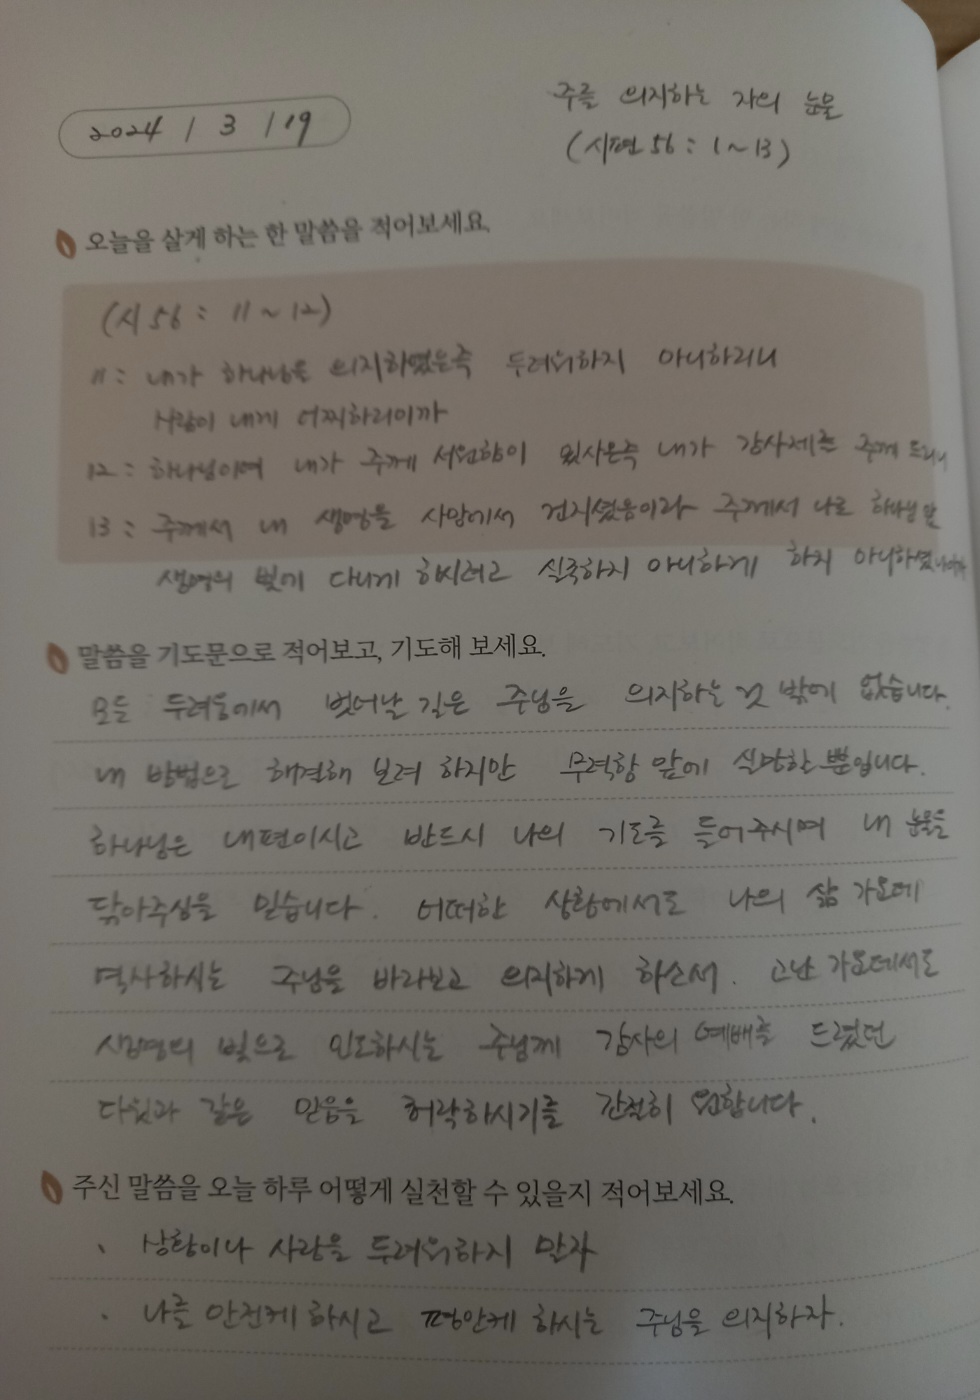 2024 / 3 / 19
주를 의지하는 자의 눈물
(시편 56 : 1~13)
오늘을 살게 하는 한 말씀을 적어보세요.
(시 56 : 11~12)
11 : 내가 하나님을 의지하였은즉 두려워하지 아니하리니
사람이 내게 어찌하리이까
12 : 하나님이여 내가 주께 서원함이 있사온즉 내가 감사제를 주께 드리니
13 : 주께서 내 생명을 사망에서 건지셨음이라 주께서 나로 하나님 앞
생명의 빛에 다니게 하시려고 실족하지 아니하게 하지 아니하셨나이까
말씀을 기도문으로 적어보고, 기도해 보세요.
모든 두려움에서 벗어날 길은 주님을 의지하는 것 밖에 없습니다.
내 방법으로 해결해 보려 하지만 무력함 앞에 실망한 뿐입니다.
하나님은 내편이시고 반드시 나의 기도를 들어주시며 내 눈물을
닦아주심을 믿습니다. 어떠한 상황에서도 나의 삶 가운데
역사하시는 주님을 바라보고 의지하게 하소서. 고난 가운데서도
생명의 빛으로 인도하시는 주님께 감사의 예배를 드렸던
다윗과 같은 믿음을 허락하시기를 간절히 원합니다.
주신 말씀을 오늘 하루 어떻게 실천할 수 있을지 적어보세요.
、 상황이나 사람을 두려워하지 말자
· 나를 안전케 하시고 평안케 하시는 주님을 의지하자.